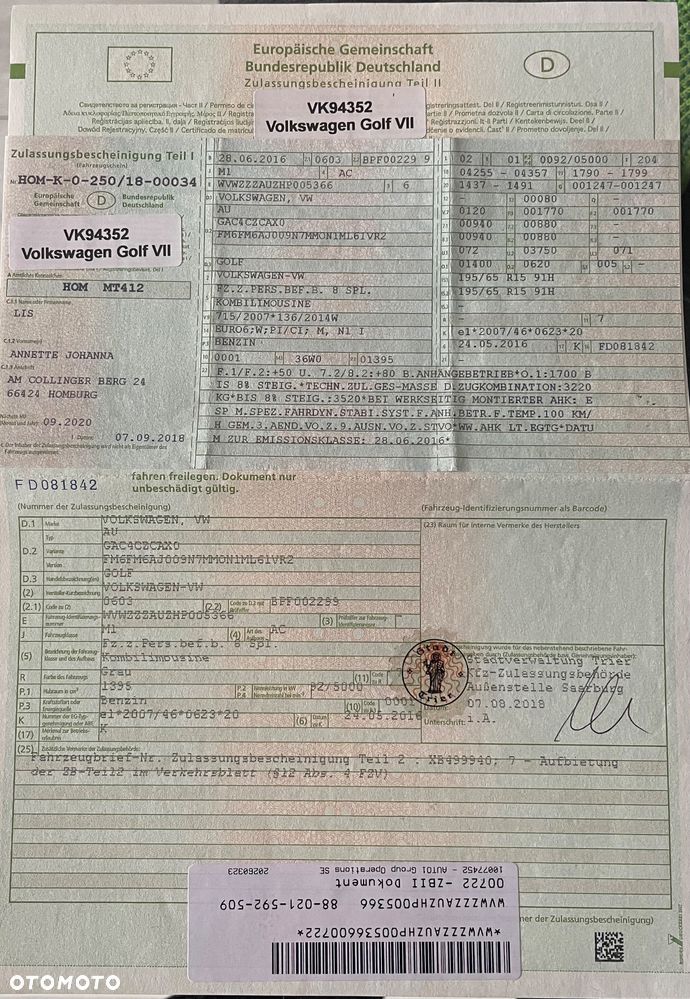 Europäische Gemeinschaft
Bundesrepublik Deutschland
Zulassungsbescheinigung Teil II
D
VK94352
Volkswagen Golf VII
Zulassungsbescheinigung Teil I
(Fahrzeugschein)
Nr. HOM-K-0-250/18-00034
Europäische Gemeinschaft
D
Bundesrepublik Deutschland
VK94352
Volkswagen Golf VII
HOM MT412
LIS
ANNETTE JOHANNA
AM COLLINGER BERG 24
66424 HOMBURG
09.2020
07.09.2018
28.06.2016 0603 BPF00229 9
M1 AC
WVWZZZAUZHP005366 6
VOLKSWAGEN, VW
AU
GAC4CZCAX0
FM6FM6AJ009N7MMON1ML61VR2
GOLF
VOLKSWAGEN-VW
FZ.Z.PERS.BEF.B. 8 SPL.
KOMBILIMOUSINE
715/2007*136/2014W
EURO6;W;PI/CI; M, N1 I
BENZIN
0001 36W0 01395
02 01 0092/05000 204
04255 - 04357 1790 - 1799
1437 - 1491 001247-001247
- 00080 -
0120 001770 001770
00940 00880 -
00940 00880 -
072 03750 071
01400 0620 005 -
195/65 R15 91H
195/65 R15 91H
-
- 7
e1*2007/46*0623*20
24.05.2016 K FD081842
F.1/F.2:+50 U. 7.2/8.2:+80 B.ANHAENGEBETRIEB*O.1:1700 B
IS 8% STEIG.*TECHN.ZUL.GES-MASSE D.ZUGKOMBINATION:3220
KG*BIS 8% STEIG.:3520*BEI WERKSEITIG MONTIERTER AHK: E
SP M.SPEZ.FAHRDYN.STABI.SYST.F.ANH.BETR.F.TEMP.100 KM/
H GEM.3.AEND.VO.Z.9.AUSN.VO.Z.STVO*WW.AHK LT.EGTG*DATU
M ZUR EMISSIONSKLASSE: 28.06.2016*
FD081842
fahren freilegen. Dokument nur
unbeschädigt gültig.
(Nummer der Zulassungsbescheinigung)
(Fahrzeug-Identifizierungsnummer als Barcode)
(23) Raum für interne Vermerke des Herstellers
D.1 Marke VOLKSWAGEN, VW
Typ AU
D.2 Variante GAC4CZCAX0
Version FM6FM6AJ009N7MMON1ML61VR2
D.3 Handelsbezeichnung(en) GOLF
(2) Hersteller-Kurzbezeichnung VOLKSWAGEN-VW
(2.1) Code zu (2) 0603 (2.2) BPF002299
E WVWZZZAUZHP005366 (3)
J Fahrzeugklasse M1 (4) AC
(5) Fz.z.Pers.bef.b. 8 Spl.
Kombilimousine
R Farbe des Fahrzeugs Grau (11)
P.1 Hubraum in cm³ 1395 P.2 P.4 92/5000
P.3 Benzin (10) 0001
K e1*2007/46*0623*20 (6) 24.05.2016
(17) K
Stadt
Trier
Stadtverwaltung Trier
Kfz-Zulassungsbehörde
Außenstelle Saarburg
Datum: 07.08.2018
Unterschrift: i.A.
(25) Zusätzliche Vermerke der Zulassungsbehörde:
Fahrzeugbrief-Nr. Zulassungsbescheinigung Teil 2 : XB499940; 7 - Aufbietung
der ZB-Teil2 im Verkehrsblatt (§12 Abs. 4 FZV)
*WVWZZZAUZHP00536600722*
WVWZZZAUZHP005366 88-021-592-509
00722 -ZBII Dokument
10077452 - AUTO1 Group Operations SE 20260323
mer der Zulassungsbescheinigung)
OTOMOTO